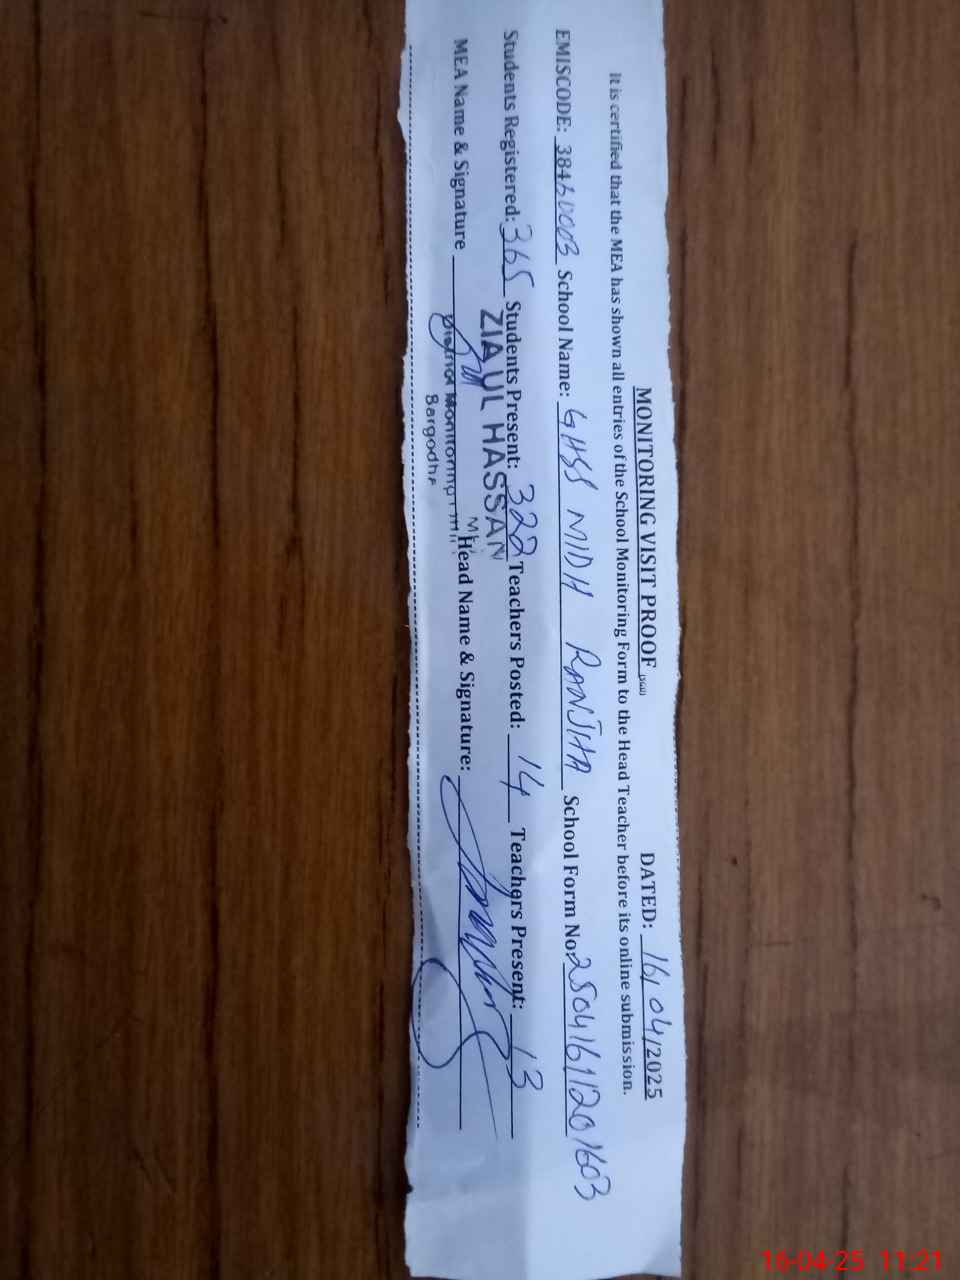 MONITORING VISIT PROOF DATED: 16/04/2025
It is certified that the MEA has shown all entries of the School Monitoring Form to the Head Teacher before its online submission.
EMISCODE: 38460003 School Name: GHSS MIDH RANJHA School Form No: 25041611201603
Students Registered: 365 Students Present: 322 Teachers Posted: 14 Teachers Present: 13
ZIA UL HASSAN
MEA Name & Signature Head Name & Signature:
District Monitoring
Sargodha
16-04-25 11:21